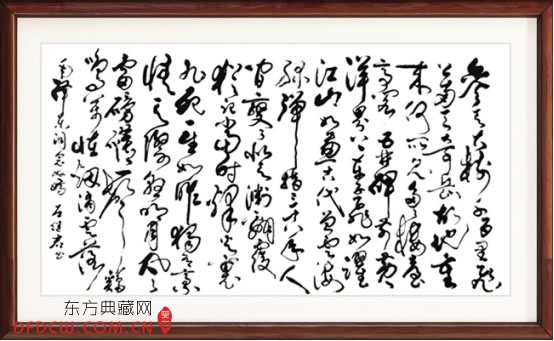 参天万木千百里飞
上南天奇岳故地重
来何所见多了楼台
亭阁五井碑前黄
洋界上车子飞如跃
江山如画古代曾云海
绿弹指三十八年人
间变了似天渊翻覆
犹记当时烽火里
九死一生如昨独有豪
情天际悬明月风
雷磅礴一声鸡
唱万怪烟消云落
毛泽东词念奴娇
东方典藏网
DFDCW.COM.CN